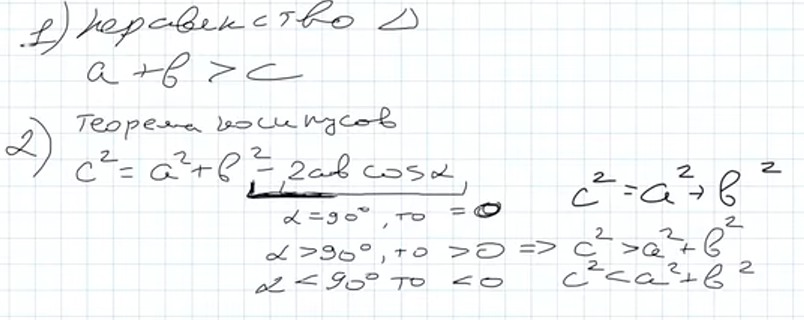 1) неравенство Δ
a + b > c
2) теорема косинусов
c² = a² + b² - 2ab cos α
c² = a² + b²
α = 90°, то = 0
α > 90°, то > 0 => c² > a² + b²
α < 90° то < 0 c² < a² + b²